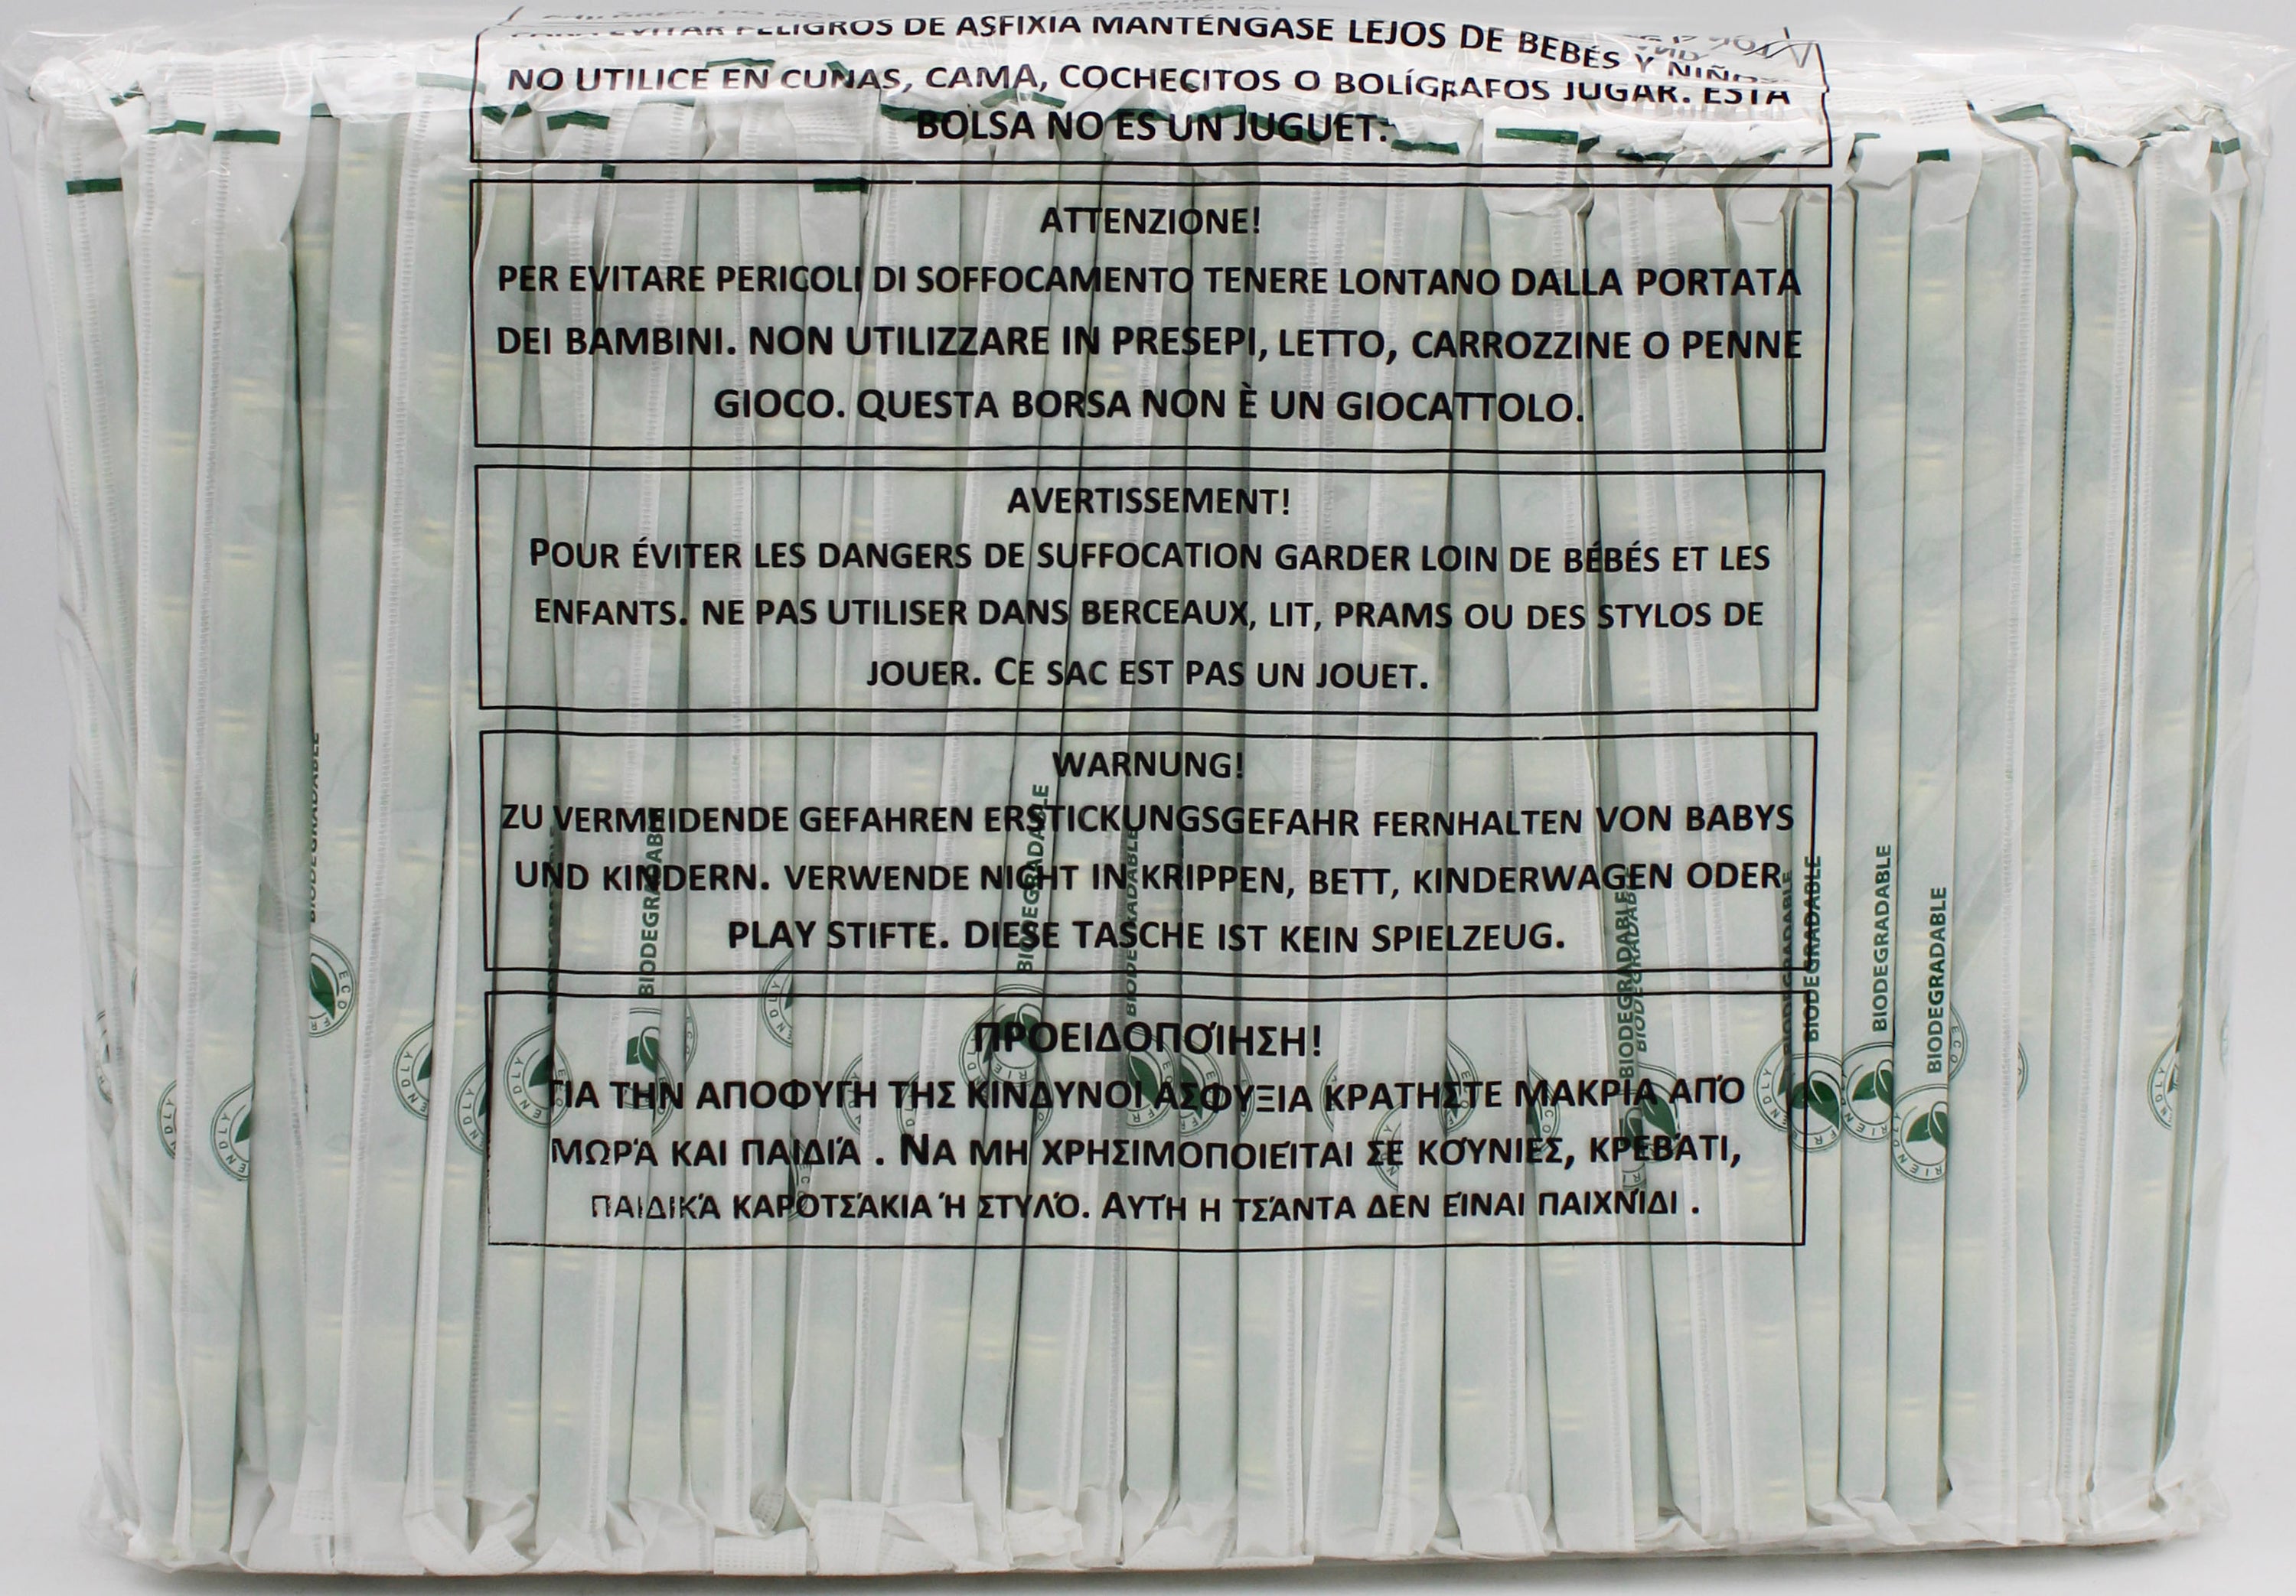 PELIGROS DE ASFIXIA MANTÉNGASE LEJOS DE BEBÉS Y
NO UTILICE EN CUNAS, CAMA, COCHECITOS O BOLÍGRAFOS JUGAR. ESTA
BOLSA NO ES UN JUGUET.
ATTENZIONE!
PER EVITARE PERICOLI DI SOFFOCAMENTO TENERE LONTANO DALLA PORTATA
DEI BAMBINI. NON UTILIZZARE IN PRESEPI, LETTO, CARROZZINE O PENNE
GIOCO. QUESTA BORSA NON È UN GIOCATTOLO.
AVERTISSEMENT!
POUR ÉVITER LES DANGERS DE SUFFOCATION GARDER LOIN DE BÉBÉS ET LES
ENFANTS. NE PAS UTILISER DANS BERCEAUX, LIT, PRAMS OU DES STYLOS DE
JOUER. CE SAC EST PAS UN JOUET.
WARNUNG!
ZU VERMEIDENDE GEFAHREN ERSTICKUNGSGEFAHR FERNHALTEN VON BABYS
UND KINDERN. VERWENDE NIGHT IN KRIPPEN, BETT, KINDERWAGEN ODER
PLAY STIFTE. DIESE TASCHE IST KEIN SPIELZEUG.
ΠΡΟΕΙΔΟΠΟΊΗΣΗ!
ΓΙΑ ΤΗΝ ΑΠΟΦΥΓΗ ΤΗΣ ΚΙΝΔΥΝΟΙ ΑΣΦΥΞΙΑ ΚΡΑΤΗΣΤΕ ΜΑΚΡΙΑ ΑΠΌ
ΜΩΡΆ ΚΑΙ ΠΑΙΔΙΆ . ΝΑ ΜΗ ΧΡΗΣΙΜΟΠΟΙΕΊΤΑΙ ΣΕ ΚΟΎΝΙΕΣ, ΚΡΕΒΆΤΙ,
ΠΑΙΔΙΚΆ ΚΑΡΟΤΣΆΚΙΑ Ή ΣΤΥΛΌ. ΑΥΤΉ Η ΤΣΆΝΤΑ ΔΕΝ ΕΊΝΑΙ ΠΑΙΧΝΊΔΙ .
BIODEGRADABLE
BIODEGRADABLE
BIODEGRADABLE
BIODEGRADABLE
BIODEGRADABLE
BIODEGRADABLE
BIODEGRADABLE